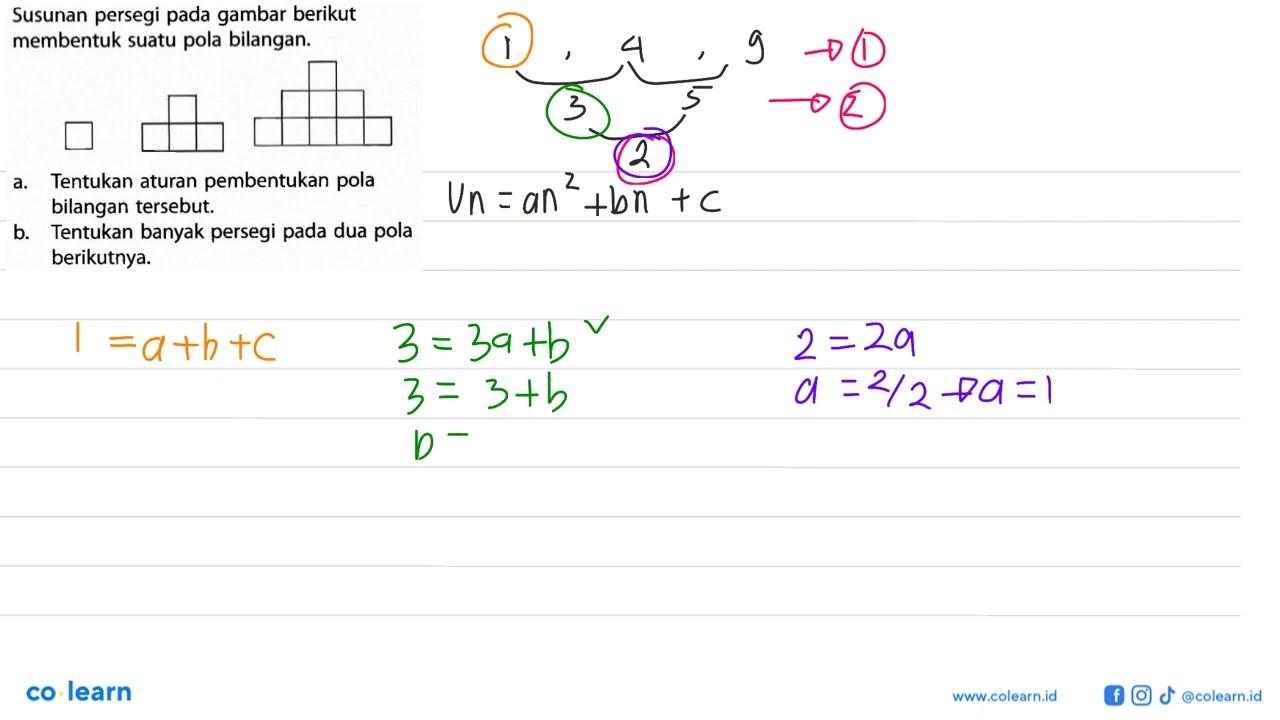 Susunan persegi pada gambar berikut
membentuk suatu pola bilangan.
a. Tentukan aturan pembentukan pola
bilangan tersebut.
b. Tentukan banyak persegi pada dua pola
berikutnya.
1 , 4 , 9 → 1
3 5 → 2
2
Un = an² + bn + c
1 = a + b + c
3 = 3a + b ✓
3 = 3 + b
b =
2 = 2a
a = 2/2 → a = 1
co learn
www.colearn.id
@colearn.id